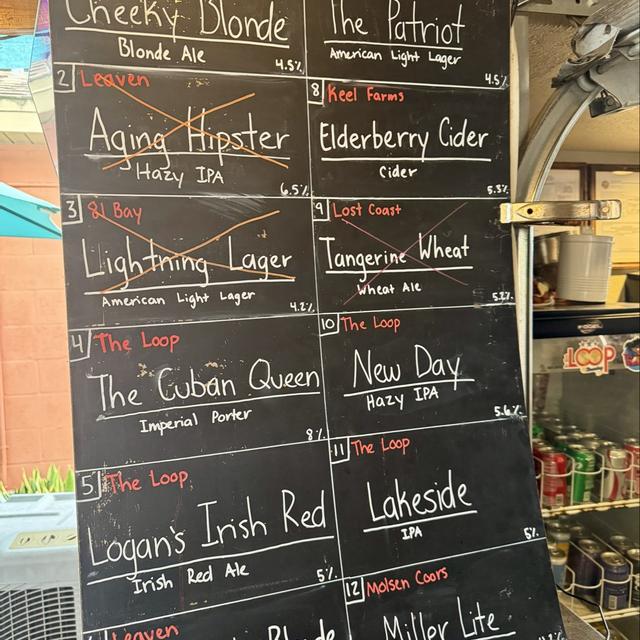 Cheeky Blonde
Blonde Ale
4.5%
2 Leaven
Aging Hipster
Hazy IPA
6.5%
3 81 Bay
Lightning Lager
American Light Lager
4.2%
4 The Loop
The Cuban Queen
Imperial Porter
8%
5 The Loop
Logan's Irish Red
Irish Red Ale
5%
Leaven
Blonde
The Patriot
American Light Lager
4.5%
8 Keel Farms
Elderberry Cider
Cider
5.5%
9 Lost Coast
Tangerine Wheat
Wheat Ale
5.2%
10 The Loop
New Day
Hazy IPA
5.6%
11 The Loop
Lakeside
IPA
6%
12 Molsen Coors
Miller Lite
LOOP